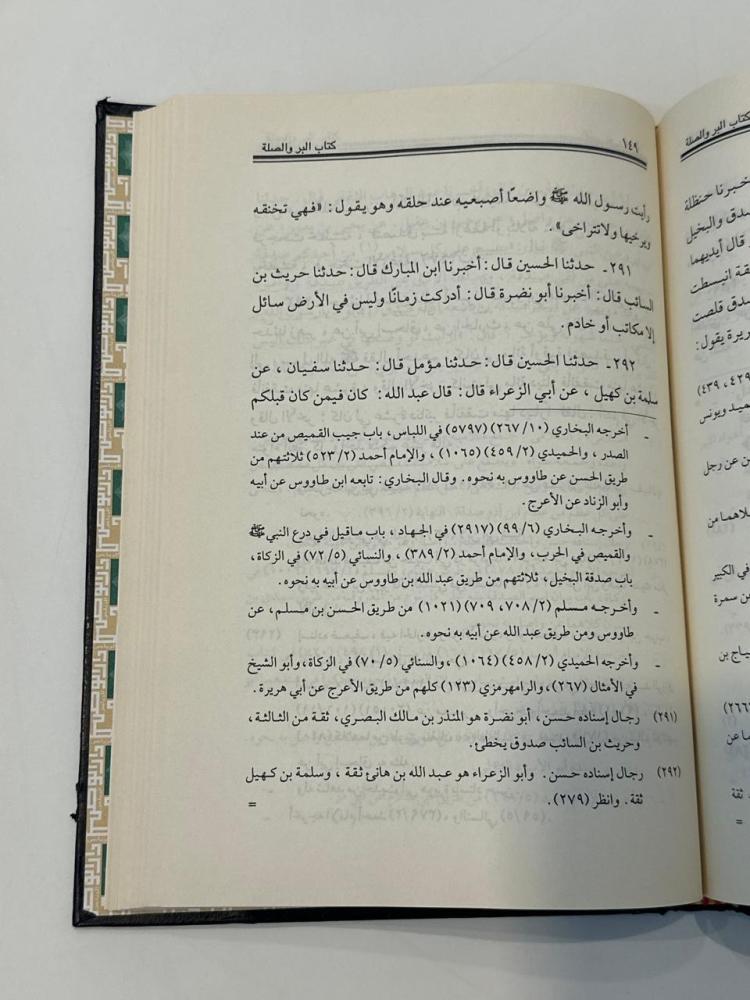 ١٤٩ كتاب البر والصلة
رأيت رسول الله ﷺ واضعًا أصبعيه عند حلقه وهو يقول: «فهي تخنقه
ويرخيها ولاتتراخى».
٢٩١ـ حدثنا الحسين قال: أخبرنا ابن المبارك قال: حدثنا حريث بن
السائب قال: أخبرنا أبو نضرة قال: أدركت زمانًا وليس في الأرض سائل
إلا مكاتب أو خادم.
٢٩٢ـ حدثنا الحسين قال: حدثنا مؤمل قال: حدثنا سفيان، عن
سلمة بن كهيل، عن أبي الزعراء قال: قال عبد الله: كان فيمن كان قبلكم
ـ أخرجه البخاري (٢٦٧/١٠) (٥٧٩٧) في اللباس، باب جيب القميص من عند
الصدر، والحميدي (٤٥٩/٢) (١٠٦٥)، والإمام أحمد (٥٢٣/٢) ثلاثتهم من
طريق الحسن عن طاووس به نحوه. وقال البخاري: تابعه ابن طاووس عن أبيه
وأبو الزناد عن الأعرج.
ـ وأخرجه البخاري (٩٩/٦) (٢٩١٧) في الجهاد، باب ماقيل في درع النبي ﷺ
والقميص في الحرب، والإمام أحمد (٣٨٩/٢)، والنسائي (٧٢/٥) في الزكاة،
باب صدقة البخيل، ثلاثتهم من طريق عبد الله بن طاووس عن أبيه به نحوه.
ـ وأخرجه مسلم (٧٠٨/٢، ٧٠٩) (١٠٢١) من طريق الحسن بن مسلم، عن
طاووس ومن طريق عبد الله عن أبيه به نحوه.
ـ وأخرجه الحميدي (٤٥٨/٢) (١٠٦٤)، والسنائي (٧٠/٥) في الزكاة، وأبو الشيخ
في الأمثال (٢٦٧)، والرامهرمزي (١٢٣) كلهم من طريق الأعرج عن أبي هريرة.
(٢٩١) رجال إسناده حسن، أبو نضرة هو المنذر بن مالك البصري، ثقة من الثالثة،
وحريث بن السائب صدوق يخطئ.
(٢٩٢) رجال إسناده حسن. وأبو الزعراء هو عبد الله بن هانئ ثقة، وسلمة بن كهيل
ثقة. وانظر (٢٧٩). =
كتاب البر والصلة
خبرنا حنظلة
صدق والبخيل
قال أيديهما
قة انبسطت
صدق قلصت
ريرة يقول:
٤٢٩، ٤٣٩)
حميد ويونس
ن عن رجل
لاهما من
في الكبير
ن سمرة
ياج بن
٢٦٦)
ما عن
ثقة
=